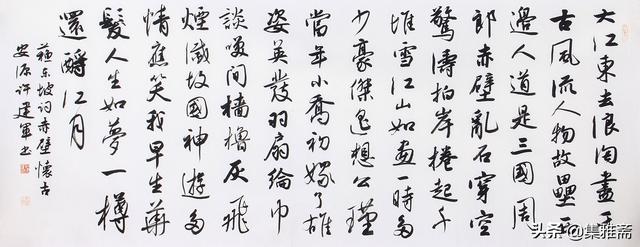 大江東去浪淘盡千
古風流人物故壘西
邊人道是三國周
郎赤壁亂石穿空
驚濤拍岸捲起千
堆雪江山如畫一時多
少豪傑遥想公瑾
當年小喬初嫁了雄
姿英發羽扇綸巾
談笑間檣櫓灰飛
煙滅故國神遊多
情應笑我早生華
髮人生如夢一樽
還酹江月
蘇東坡詞赤壁懷古
安源許建軍書
头条 @集雅斋